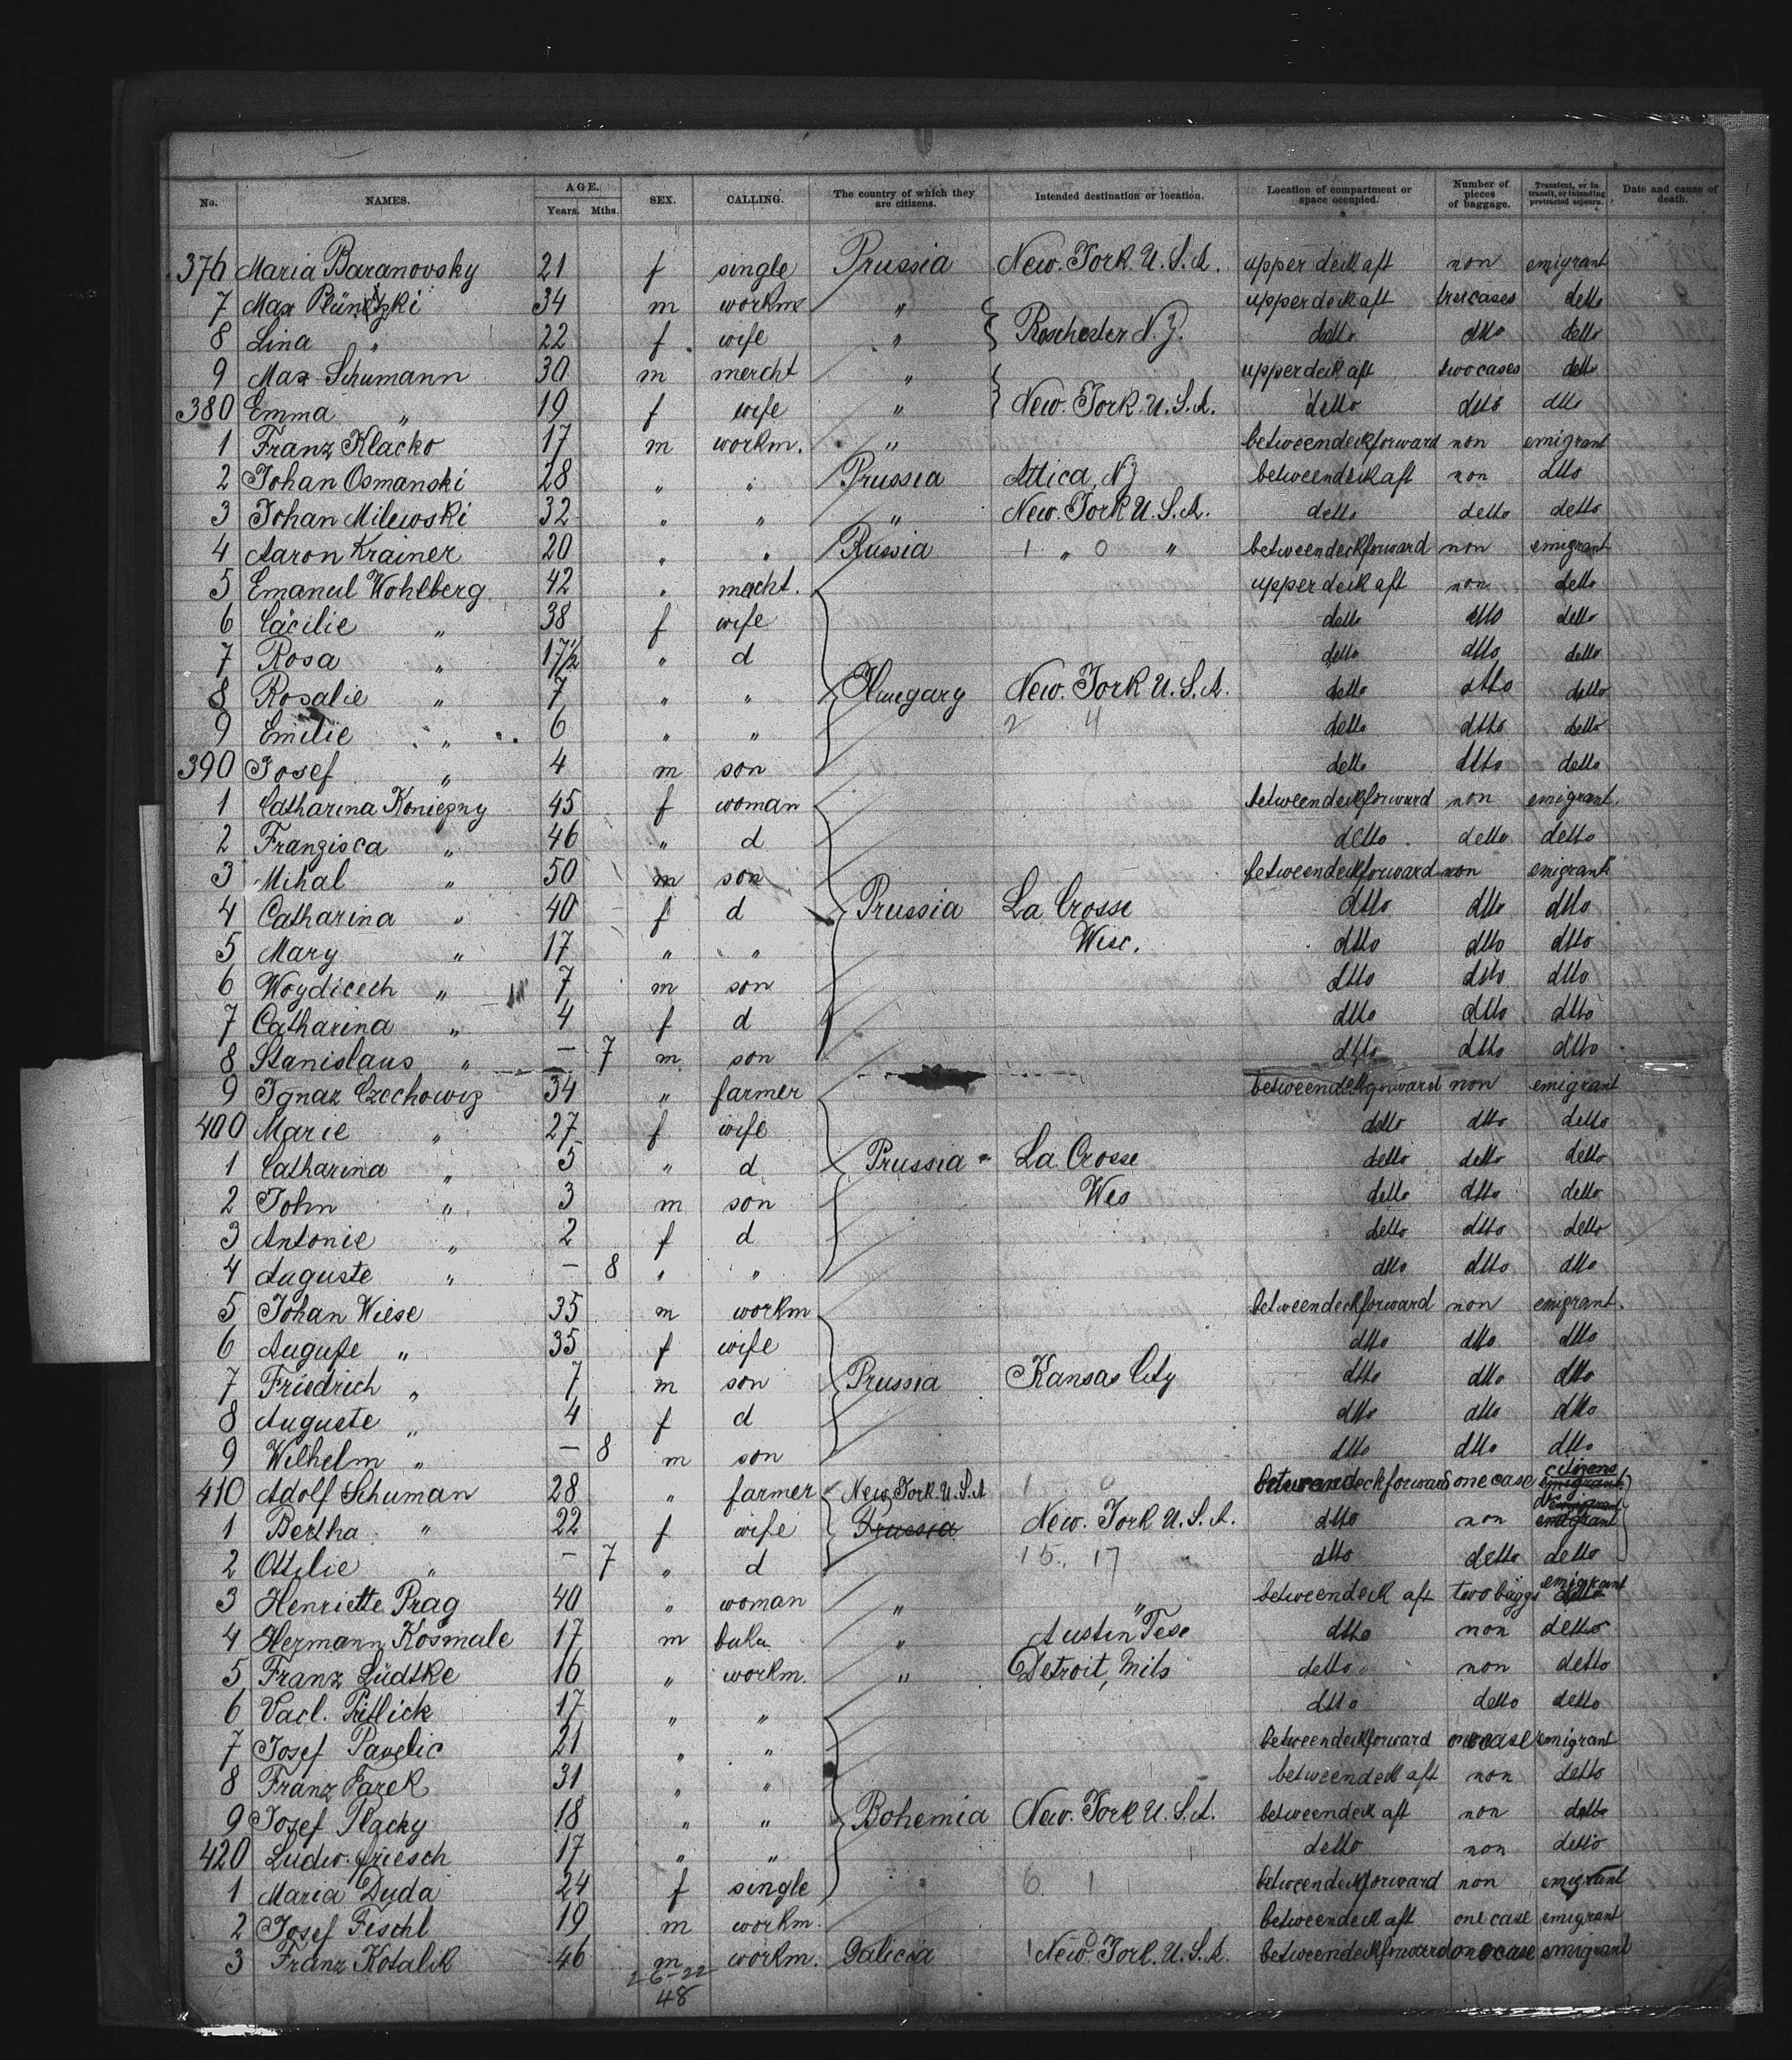 No. NAMES. AGE. Years. Mths. SEX. CALLING. The country of which they are citizens. Intended destination or location. Location of compartment or space occupied. Number of pieces of baggage. Transient, or in transit, or intending protracted sojourn. Date and cause of death.
376 Maria Baranovsky 21 f single Prussia New. York. U. S. A. upper deck aft non emigrant
7 Max 34 m workm " upper deck aft trescases detto
8 Lina " 22 f wife " Roschester N. Y. detto dtto detto
9 Max Schumann 30 m mercht " upper deck aft two cases detto
380 Emma " 19 f wife " New. York. U. S. A. detto dtto dtto
1 Franz Klacko 17 m workm. " betweendeckforward non emigrant
2 Johan Osmanski 28 " " Prussia Attica, NY betweendeck aft non dtto
3 Johan Milewski 32 " " " New. York U. S. A. detto detto detto
4 Aaron Krainer 20 " " Russia 1 " 0 " betweendeckforward non emigrant
5 Emanul Wohlberg 42 " mercht. upper deck aft non detto
6 Cäcilie " 38 f wife detto dtto detto
7 Rosa " 17½ " d detto dtto detto
8 Rosalie " 7 " " Hungary New. York U. S. A. detto dtto detto
9 Emilie " 6 " " 2 4 detto dtto detto
390 Josef " 4 m son detto dtto detto
1 Catharina Koniezny 45 f woman betweendeckforward non emigrant.
2 Franzisca " 46 " d detto detto detto
3 Mihal " 50 m son betweendeckforward non emigrant
4 Catharina " 40 f d Prussia La Crosse dtto dtto dtto
5 Mary " 17 " " Wisc. dtto dtto dtto
6 Woydicech " 7 m son dtto dtto dtto
7 Catharina " 4 f d dtto dtto dtto
8 Stanislaus " — 7 m son dtto dtto dtto
9 Ignaz Czechowiz 34 " farmer betweendeckforward non emigrant
400 Marie " 27 f wife detto dtto detto
1 Catharina " 5 " d Prussia La Crosse detto detto detto
2 John " 3 m son Wis detto dtto detto
3 Antonie " 2 f d detto dtto detto
4 Auguste " — 8 " " dtto dtto dtto
5 Johan Wiese 35 m workm betweendeckforward non emigrant.
6 Auguste " 35 f wife dtto dtto dtto
7 Friedrich " 7 m son Prussia Kansas City dtto dtto dtto
8 Auguste " 4 f d dtto dtto dtto
9 Wilhelm " — 8 m son dtto dtto dtto
410 Adolf Schuman 28 " farmer New York. U. S. A 1 0 betweendeckforward one case citizens emigrant
1 Bertha " 22 f wife Prussia New. York U. S. A. dtto non emigrant
2 Ottilie " — 7 " d 15. 17 dtto detto detto
3 Henriette Prag 40 " woman " " betweendeck aft two baggs emigrant detto
4 Hermann Kosmale 17 m " Austin Tese dtto non detto
5 Franz Lüdtke 16 " workm. " Detroit, Mils detto non detto
6 Vacl. 17 " " dtto detto detto
7 Josef Pavelic 21 " " betweendeckforward one case emigrant
8 Franz 31 " " betweendeck aft non detto
9 Josef Placky 18 " " Bohemia New. York U. S. A. betweendeck aft non detto
420 Ludw. Griesch 17 " " detto non detto
1 Maria Duda 24 f single 6. 1 betweendeckforward non emigrant
2 Josef Fischl 19 m workm. betweendeck aft one case emigrant
3 Franz Kotalik 46 m workm. Galicia 1 New. York. U. S. A. betweendeckforward one case emigrant
26-22
48